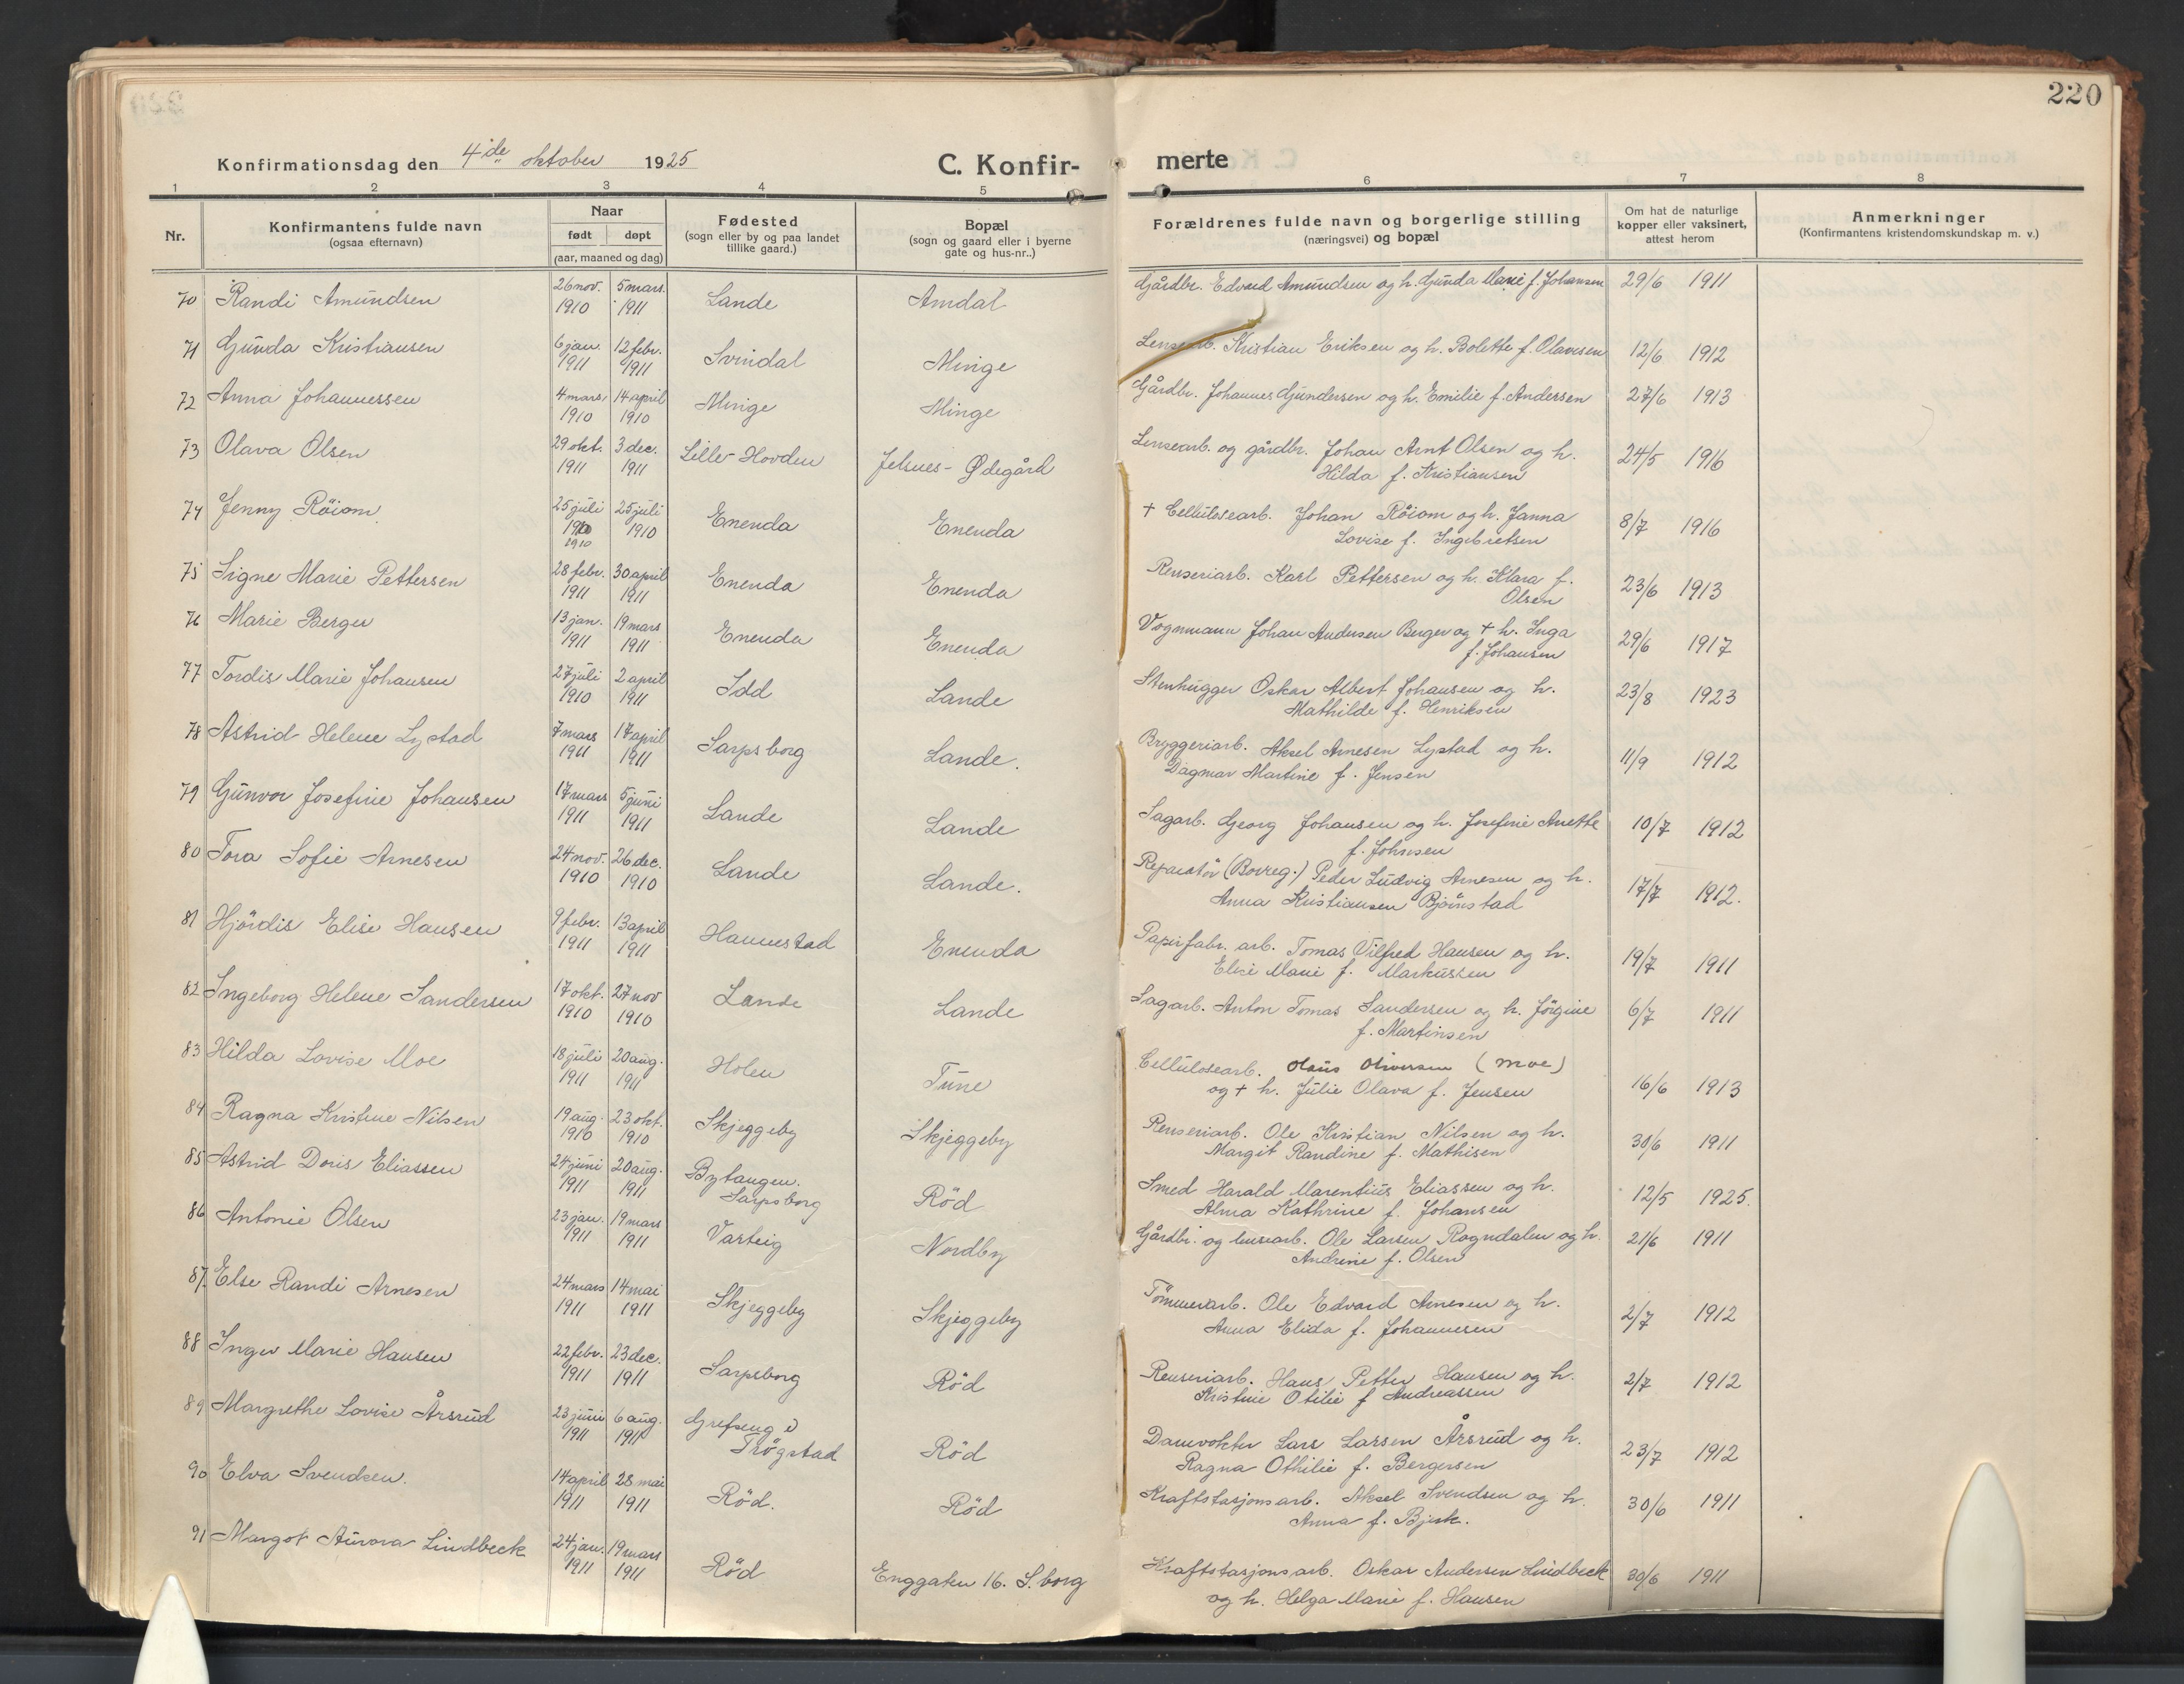 220
Konfirmationsdag den 4de oktober 1925
C. Konfir-
merte
1 2 3 4 5 6 7 8
Nr.
Konfirmantens fulde navn
(ogsaa efternavn)
Naar
født døpt
(aar, maaned og dag)
Fødested
(sogn eller by og paa landet
tillike gaard.)
Bopæl
(sogn og gaard eller i byerne
gate og hus-nr..)
Forældrenes fulde navn og borgerlige stilling
(næringsvei) og bopæl
Om hat de naturlige
kopper eller vaksinert,
attest herom
Anmerkninger
(Konfirmantens kristendomskundskap m. v.)
70 Randi Amundsen 26 nov. 1910 5 mars. 1911 Lande Amdal Gårdbr. Edvard Amundsen og h. Gunda Marie f. Johansen 29/6 1911
71 Gunda Kristiansen 6 jan. 1911 12 febr. 1911 Svindal Minge Lensearb. Kristian Eriksen og h. Bolette f. Olavesen 12/6 1912
72 Anna Johannessen 4 mars 1910 14 april 1910 Minge Minge Gårdbr. Johannes Gundersen og h. Emilie f. Andersen 27/6 1913
73 Olava Olsen 29 okt. 1911 3 dec. 1911 Lille-Hovden Jelsnes-Ødegård Lensearb. og gårdbr. Johan Arnt Olsen og h.
Hilda f. Kristiansen 24/5 1916
74 Jenny Röiom 25 juli 1910 1910 25 juli 1910 Enenda Enenda + Cellulosearb. Johan Röiom og h. Janna
Lovise f. Ingebretsen 8/7 1916
75 Signe Marie Pettersen 28 febr. 1911 30 april 1911 Enenda Enenda Renseriarb. Karl Pettersen og h. Klara f.
Olsen 23/6 1913
76 Marie Berger 13 jan. 1911 19 mars 1911 Enenda Enenda Vognmann Johan Andersen Berger og + h. Inga
f. Johansen 29/6 1917
77 Tordis Marie Johansen 27 juli 1910 2 april 1911 Idd Lande Stenhugger Oskar Albert Johansen og h.
Mathilde f. Henriksen 23/8 1923
78 Astrid Helene Lystad 7 mars 1911 17 april 1911 Sarpsborg Lande. Bryggeriarb. Aksel Arnesen Lystad og h.
Dagmar Martine f. Jensen 11/9 1912
79 Gunvor Josefine Johansen 17 mars 1911 5 juni 1911 Lande Lande Sagarb. Georg Johansen og h. Josefine Anette
f. Johnsen 10/7 1912
80 Tora Sofie Arnesen 24 nov. 1910 26 dec. 1910 Lande Lande. Reparatör (Borreg.) Peder Ludvig Arnesen og h.
Anna Kristiansen Björnstad 17/7 1912.
81 Hjördis Elise Hansen 9 febr. 1911 13 april 1911 Hannestad Enenda Papirfabr. arb. Tomas Vilfred Hansen og h.
Elise Marie f. Markussen 19/7 1911
82 Ingeborg Helene Sandersen 17 okt. 1910 27 nov 1910 Lande Lande Sagarb. Anton Tomas Sandersen og h. Jörgine
f. Martinsen 6/7 1911
83 Hilda Lovise Moe 18 juli 1911 20 aug. 1911 Holen Tune Cellulosearb. Olaus Oliversen (Moe)
og + h. Julie Olava f. Jensen 16/6 1913
84 Ragna Kristine Nilsen 19 aug. 1910 23 okt. 1910 Skjeggeby Skjeggeby Renseriarb. Ole Kristian Nilsen og h.
Margit Randine f. Mathisen 30/6 1911
85 Astrid Doris Eliassen 24 juni 1911 20 aug. 1911 Bytangen. Sarpsborg Röd Smed Harald Marentius Eliassen og h.
Alma Kathrine f. Johansen 12/5 1925.
86 Antonie Olsen 23 jan. 1911 19 mars 1911 Varteig Nordby Gårdbr. og lensearb. Ole Larsen Rogndalen og h.
Andrine f. Olsen 21/6 1911
87. Else Randi Arnesen 24 mars 1911 14 mai 1911 Skjeggeby Skjeggeby Tömmerarb. Ole Edvard Arnesen og h.
Anna Elida f. Johannesen 2/7 1912
88 Inger Marie Hansen 22 febr. 1911 23 dec. 1911 Sarpsborg Röd Renseriarb. Hans Petter Hansen og h.
Kristine Otilie f Andreassen 2/7 1912
89 Margrethe Lovise Årsrud 23 juni 1911 6 aug. 1911 Grefseng i Trögstad Röd Damvokter Lars Larsen Årsrud og h.
Ragna Othilie f. Bergersen 23/7 1912
90 Elva Svendsen. 14 april 1911 28 mai 1911 Röd. Röd Kraftstasjonsarb. Aksel Svendsen og h.
Anna f. Bjerk. 30/6 1911
91 Margot Aurora Lindbeck 24 jan. 1911 19 mars 1911 Röd Enggaten 16. S.borg Kraftstasjonsarb. Oskar Andersen Lindbeck
og h. Helga Marie f. Hansen 30/6 1911